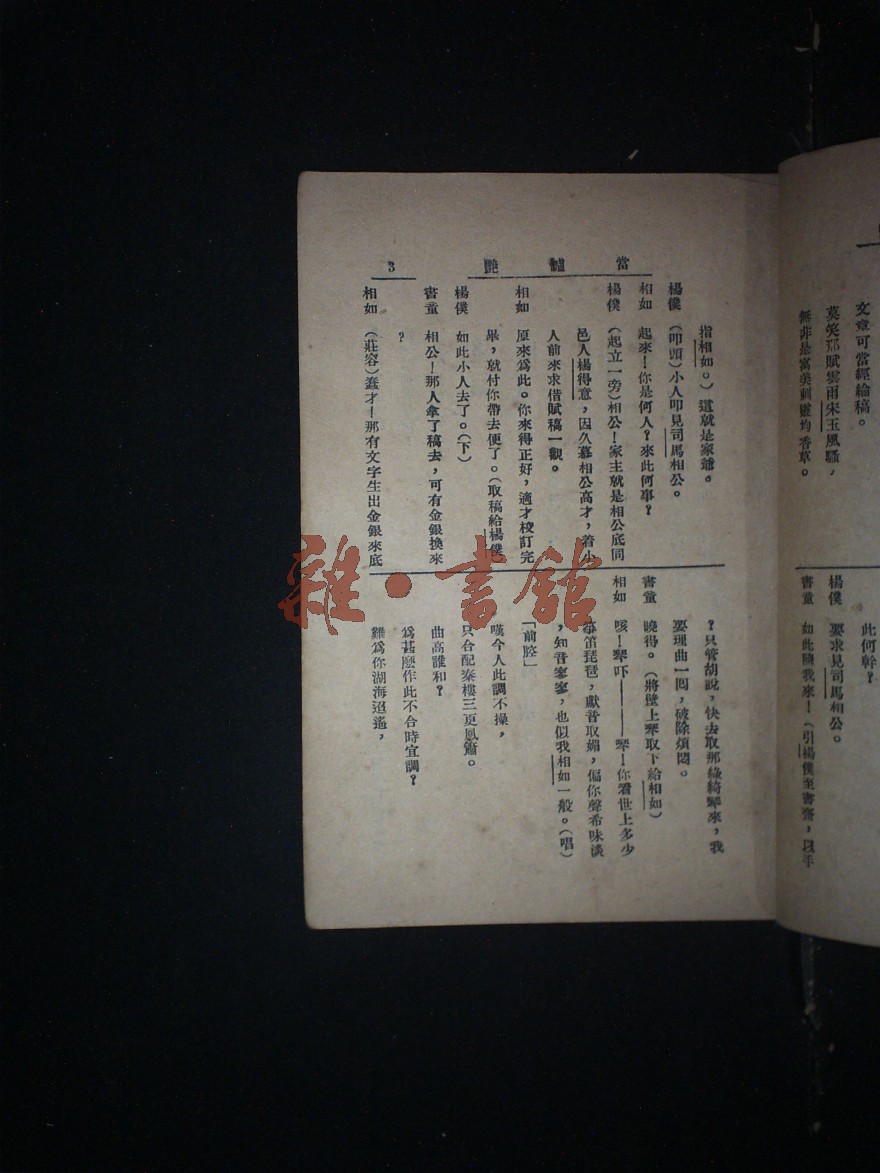 文章可當經綸稿。
莫笑那賦雲雨宋玉風騷，
無非是寓美刺靈均香草。
此何幹？
楊僕　要求見司馬相公。
書童　如此隨我來！（引楊僕至書齋，以手
當罏艷
3
指相如。）這就是家爺。
楊僕　（叩頭）小人叩見司馬相公。
相如　起來！你是何人？來此何事？
楊僕　（起立一旁）相公！家主就是相公底同
邑人楊得意，因久慕相公高才，着小
人前來求借賦稿一觀。
相如　原來爲此。你來得正好，適才校訂完
畢，就付你帶去便了。（取稿給楊僕）
楊僕　如此小人去了。（下）
書童　相公！那人拿了稿去，可有金銀換來
？
相如　（莊容）蠢才！那有文字生出金銀來底
？只管胡說，快去取那綠綺琴來，我
要理曲一囘，破除煩悶。
書童　曉得。（將壁上琴取下給相如）
相如　咳！琴吓———琴！你看世上多少
箏笛琵琶，獻音取媚，偏你聲希味淡
，知音寥寥，也似我相如一般。（唱）
「前腔」
嘆今人此調不操，
只合配秦樓三更鳳簫。
曲高誰和？
爲甚麽作此不合時宜調？
難爲你湖海迢遙，
雜·書館